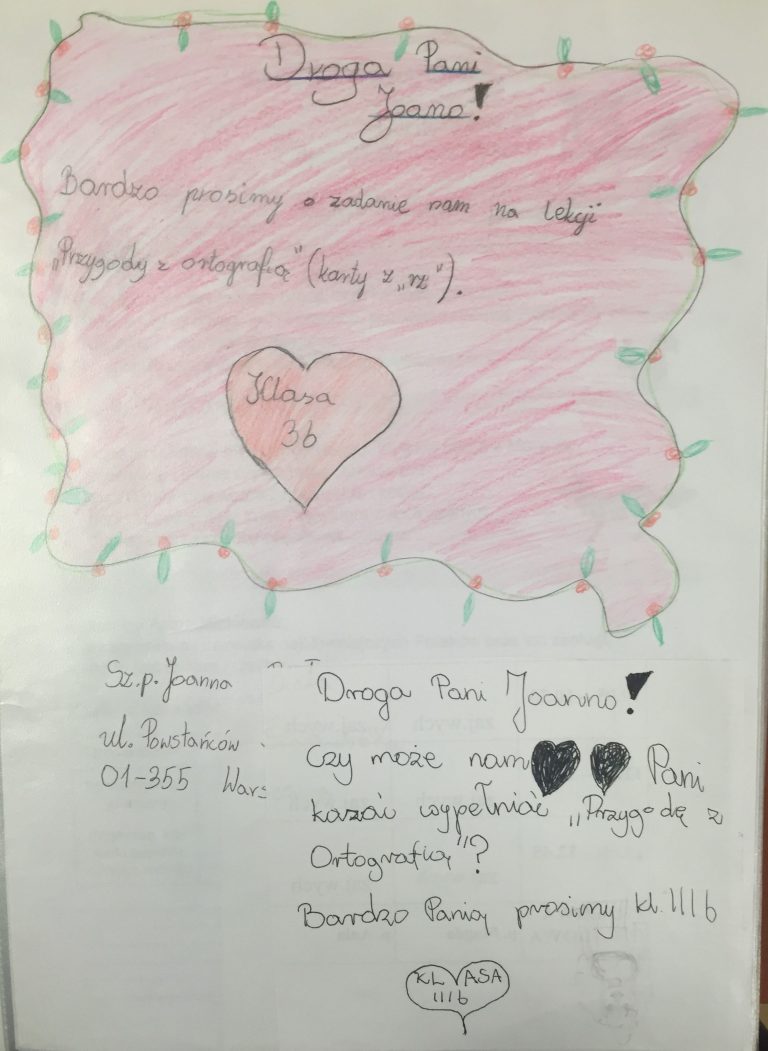 Droga Pani
Joano!
Bardzo prosimy o zadanie nam na lekcji
„Przygody z ortografią" (karty z „rz").
Klasa
3b
Sz.p. Joanna
ul. Powstańców
01-355 Wars
Droga Pani Joanno!
Czy może nam Pani
kazać wypełniać „Przygodę z
Ortografią"?
Bardzo Panią prosimy kl. IIIb
KLASA
IIIb